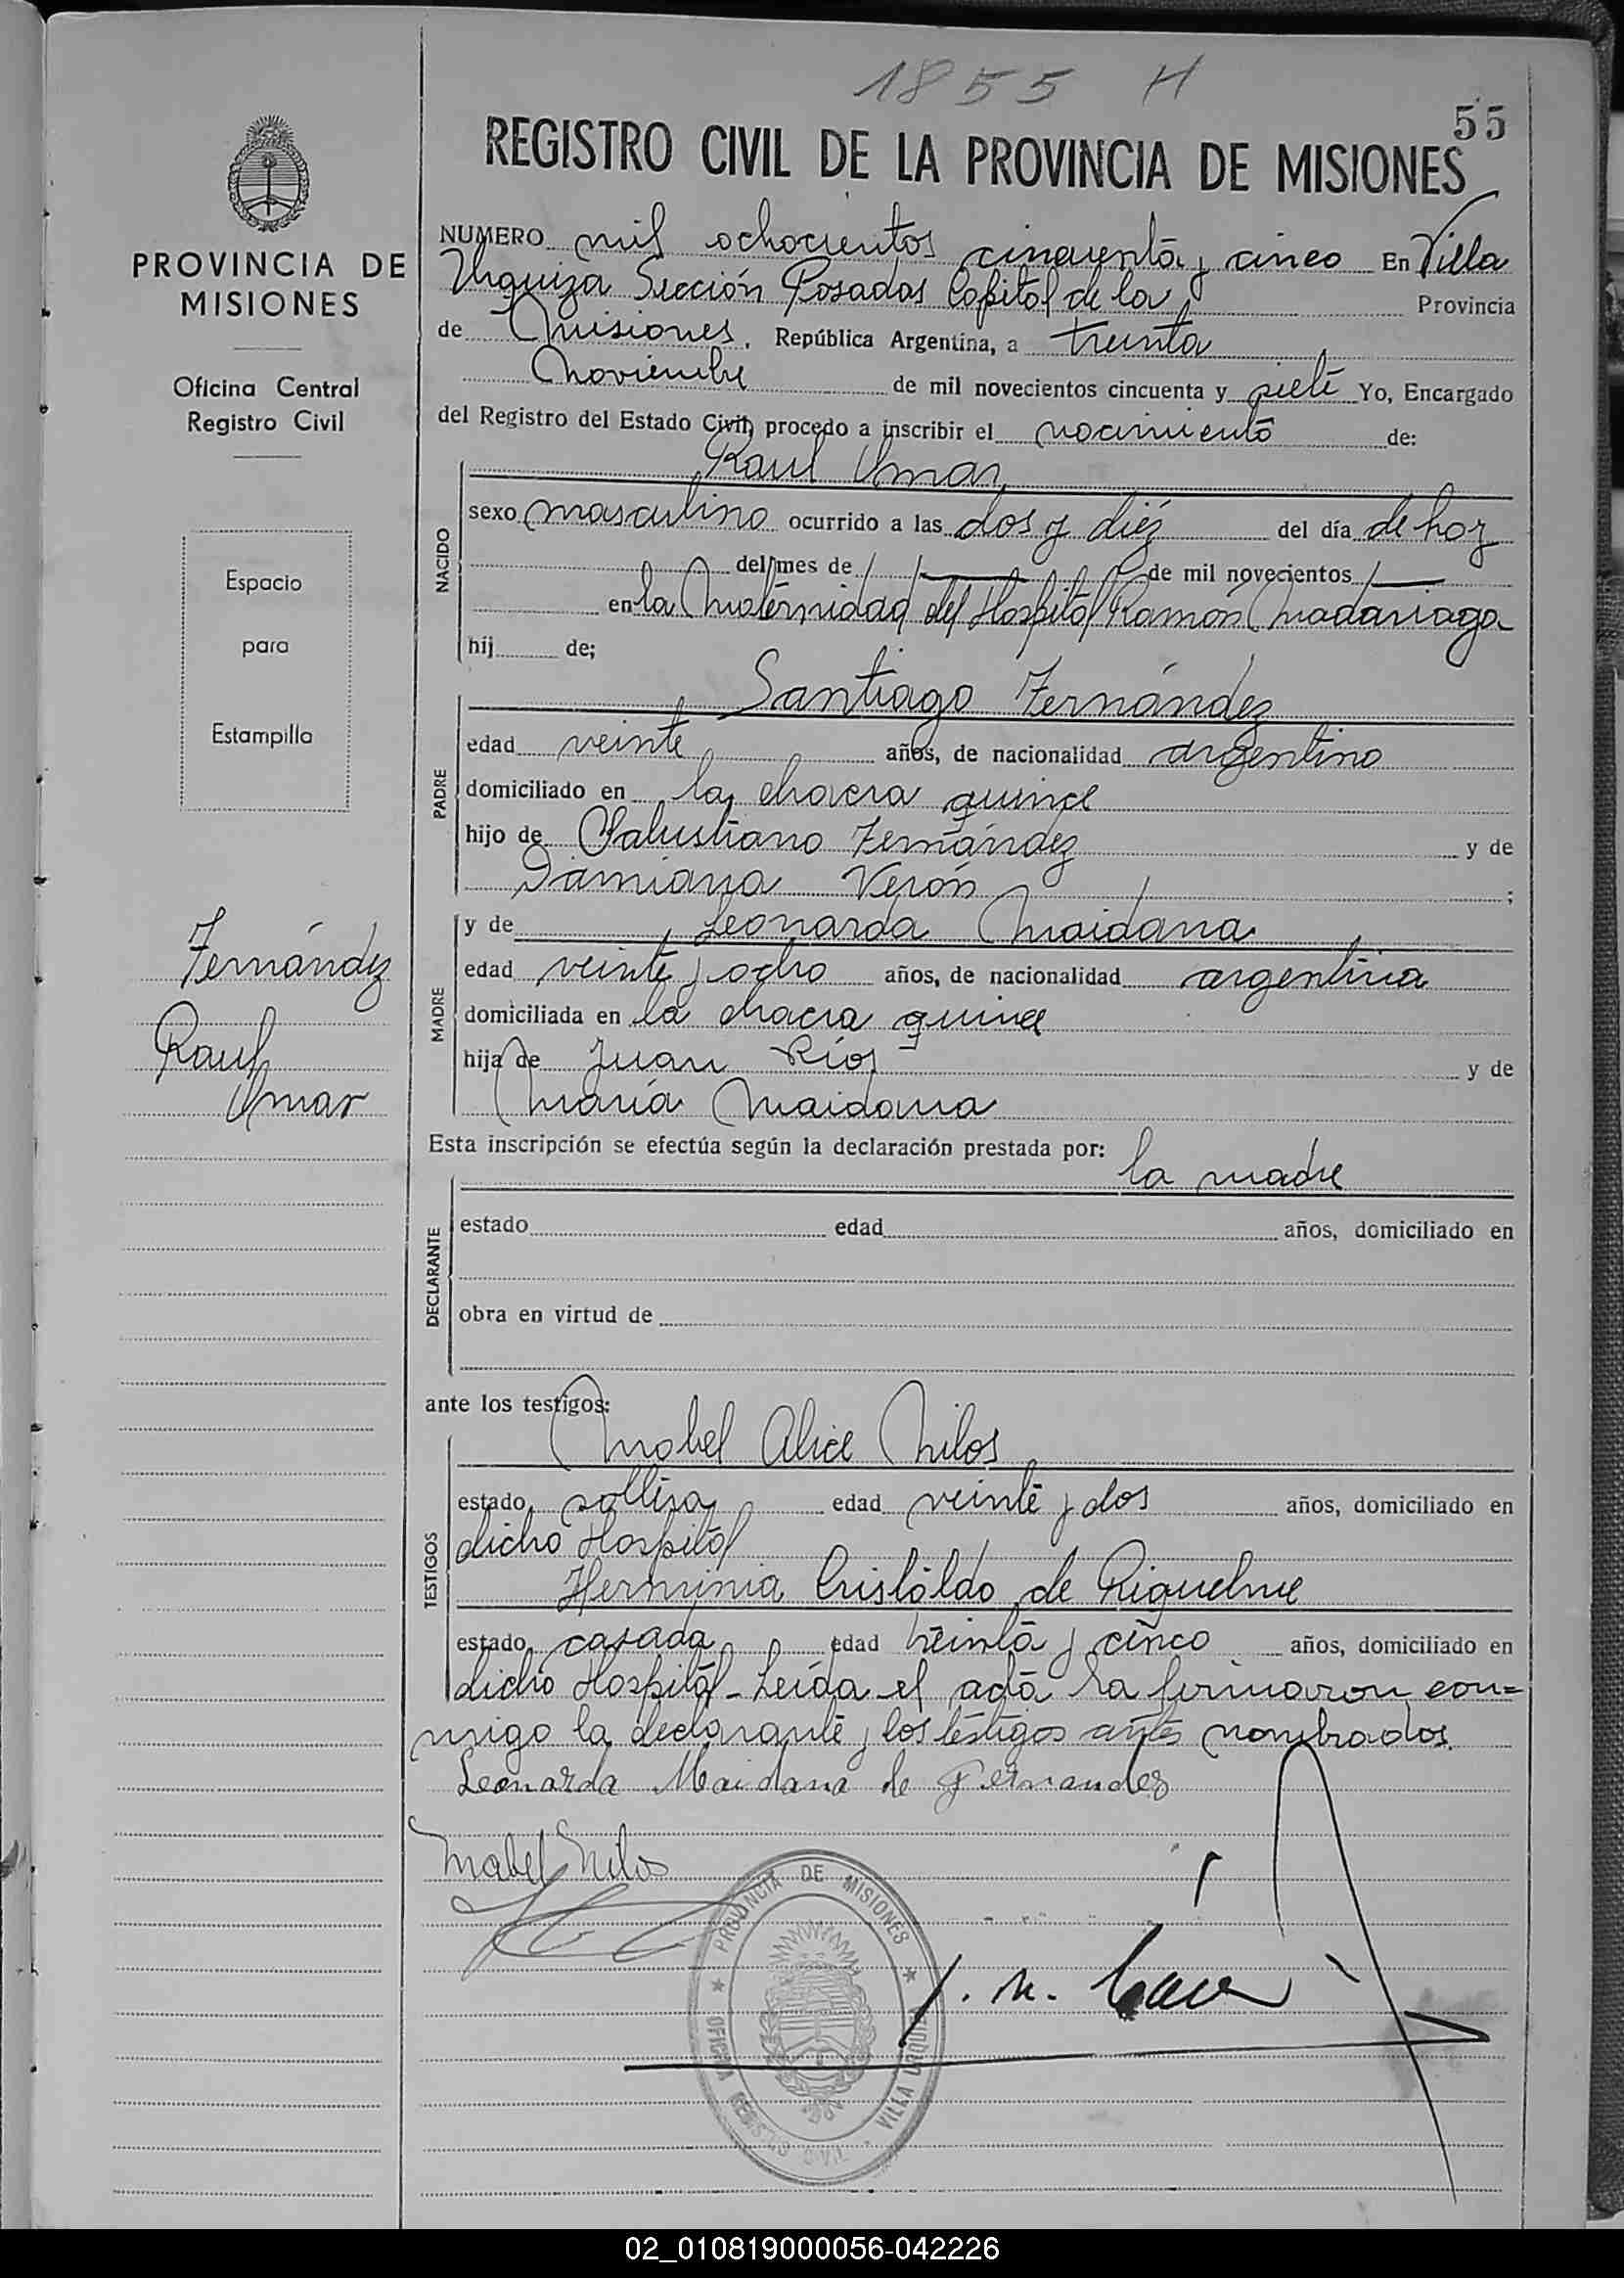 1855 H
55
REGISTRO CIVIL DE LA PROVINCIA DE MISIONES
PROVINCIA DE
MISIONES
Oficina Central
Registro Civil
Espacio
para
Estampilla
Fernández
Raul
Omar
NUMERO mil ochocientos cincuenta y cinco En Villa
Urquiza Sección Posadas Capital de la Provincia
de Misiones, República Argentina, a treinta
Noviembre de mil novecientos cincuenta y siete Yo, Encargado
del Registro del Estado Civil, procedo a inscribir el nacimiento de:
Raul Omar
NACIDO
sexo masculino ocurrido a las dos y diéz del día de hoy
del mes de de mil novecientos
en la Maternidad del Hospital Ramón Madariaga
hij de;
Santiago Fernández
PADRE
edad veinte años, de nacionalidad argentino
domiciliado en la chacra quince
hijo de Salustiano Fernández y de
Damiana Verón ;
y de Leonarda Maidana
MADRE
edad veinte y ocho años, de nacionalidad argentina
domiciliada en la chacra quince
hija de Juan Ríos y de
María Maidana
Esta inscripción se efectúa según la declaración prestada por:
la madre
DECLARANTE
estado edad años, domiciliado en
obra en virtud de
ante los testigos:
Mabel Alice Milos
TESTIGOS
estado soltera edad veinte y dos años, domiciliado en
dicho Hospital
Herminia Cristaldo de Riquelme
estado casada edad treinta y cinco años, domiciliado en
dicho Hospital - Leída el acta la firmaron con=
migo la declarante y los testigos antes nombrados.
Leonarda Maidana de Fernandez
Mabel Milos
PROVINCIA DE MISIONES
OFICINA REGISTRO CIVIL
VILLA URQUIZA
02_010819000056-042226